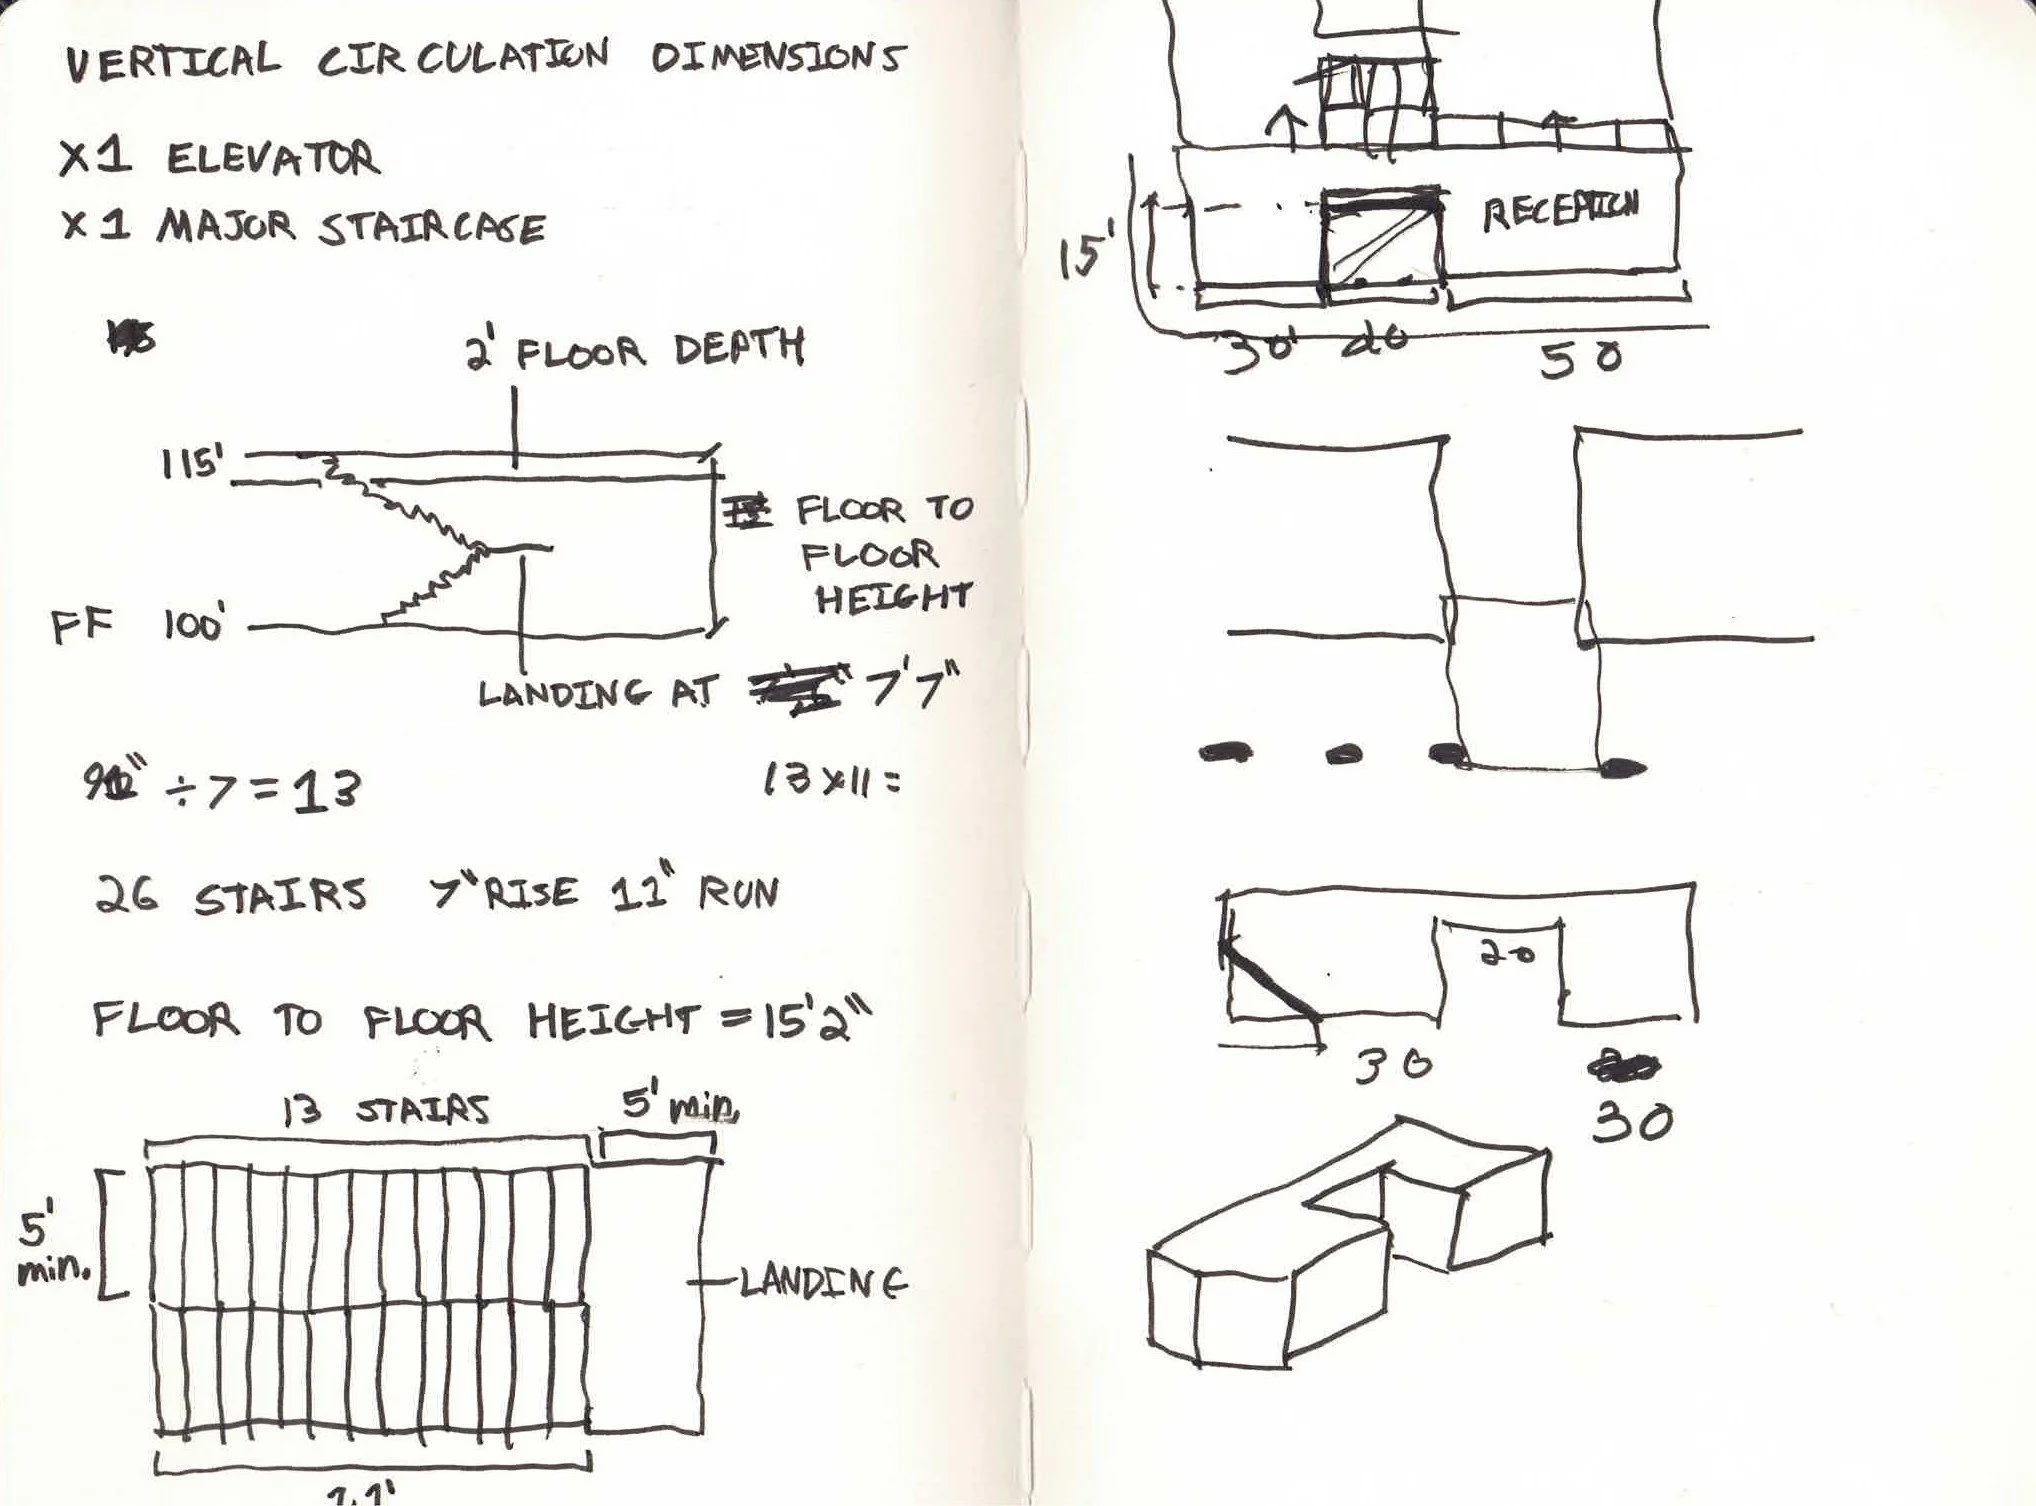 VERTICAL CIRCULATION DIMENSIONS
X1 ELEVATOR
X1 MAJOR STAIRCASE
2' FLOOR DEPTH
115'
FLOOR TO
FLOOR
HEIGHT
FF 100'
LANDING AT 7'7"
÷7=13
13x11=
26 STAIRS 7" RISE 11" RUN
FLOOR TO FLOOR HEIGHT = 15'2"
13 STAIRS
5' min.
5'
min.
LANDING
RECEPTION
15'
30' 20 50
20
30
30